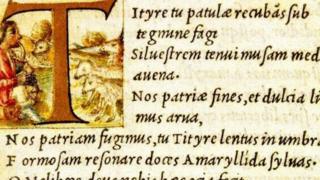 T Ityre tu patulæ recubãs sub
tegmine fagi
Siluestrem tenui musam med
auena.
Nos patriæ fines, et dulcia li
mus arua,
N os patriam fugimus, tu Tityre lentus in umbra
F ormosam resonare doces Amaryllida syluas.